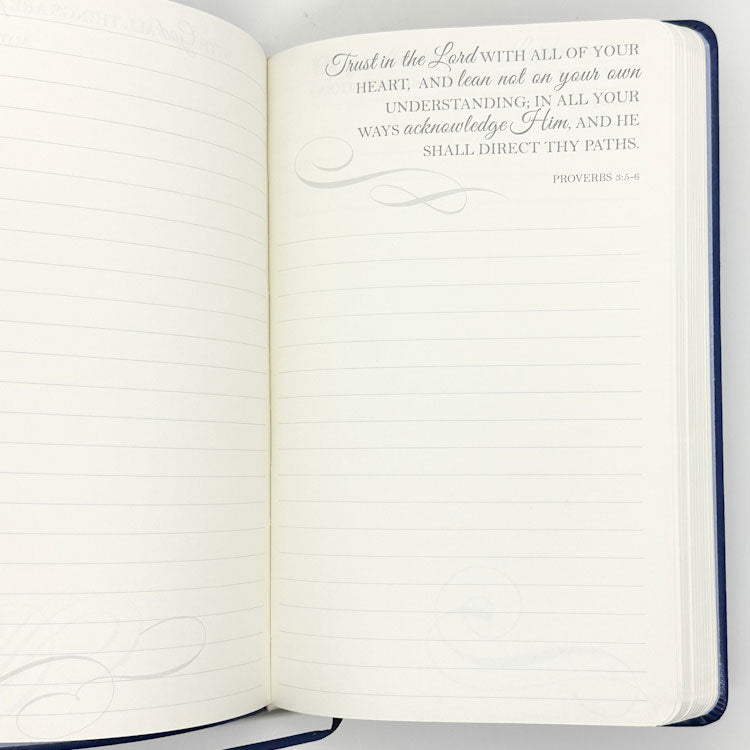 Trust in the Lord WITH ALL OF YOUR
HEART, AND lean not on your own
UNDERSTANDING; IN ALL YOUR
WAYS acknowledge Him, AND HE
SHALL DIRECT THY PATHS.
PROVERBS 3:5–6